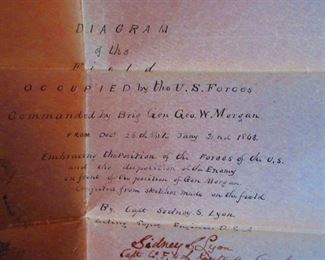 DIAGRAM
of the
Field
OCCUPIED by the U.S. Forces
Commanded by Brig Gen Geo. W. Morgan
From Dec 26th to Jany 2nd 1863.
Embracing the position of the Forces of the U.S.
and the disposition of the Enemy
in front of the position of Gen Morgan
Compiled from sketches made on the field
By Capt Sidney S. Lyon
Acting Topgl Engineer U.S.A
Sidney S Lyon
Capt